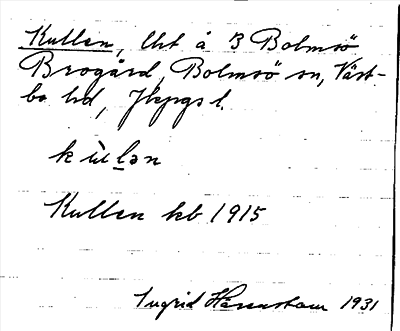 Kullen, lht å 3 Bolmsö
Brogård, Bolmsö sn, Väst-
bo hd, Jkpgs l.
kùlən
Kullen kb 1915
Ingrid Härenstam 1931